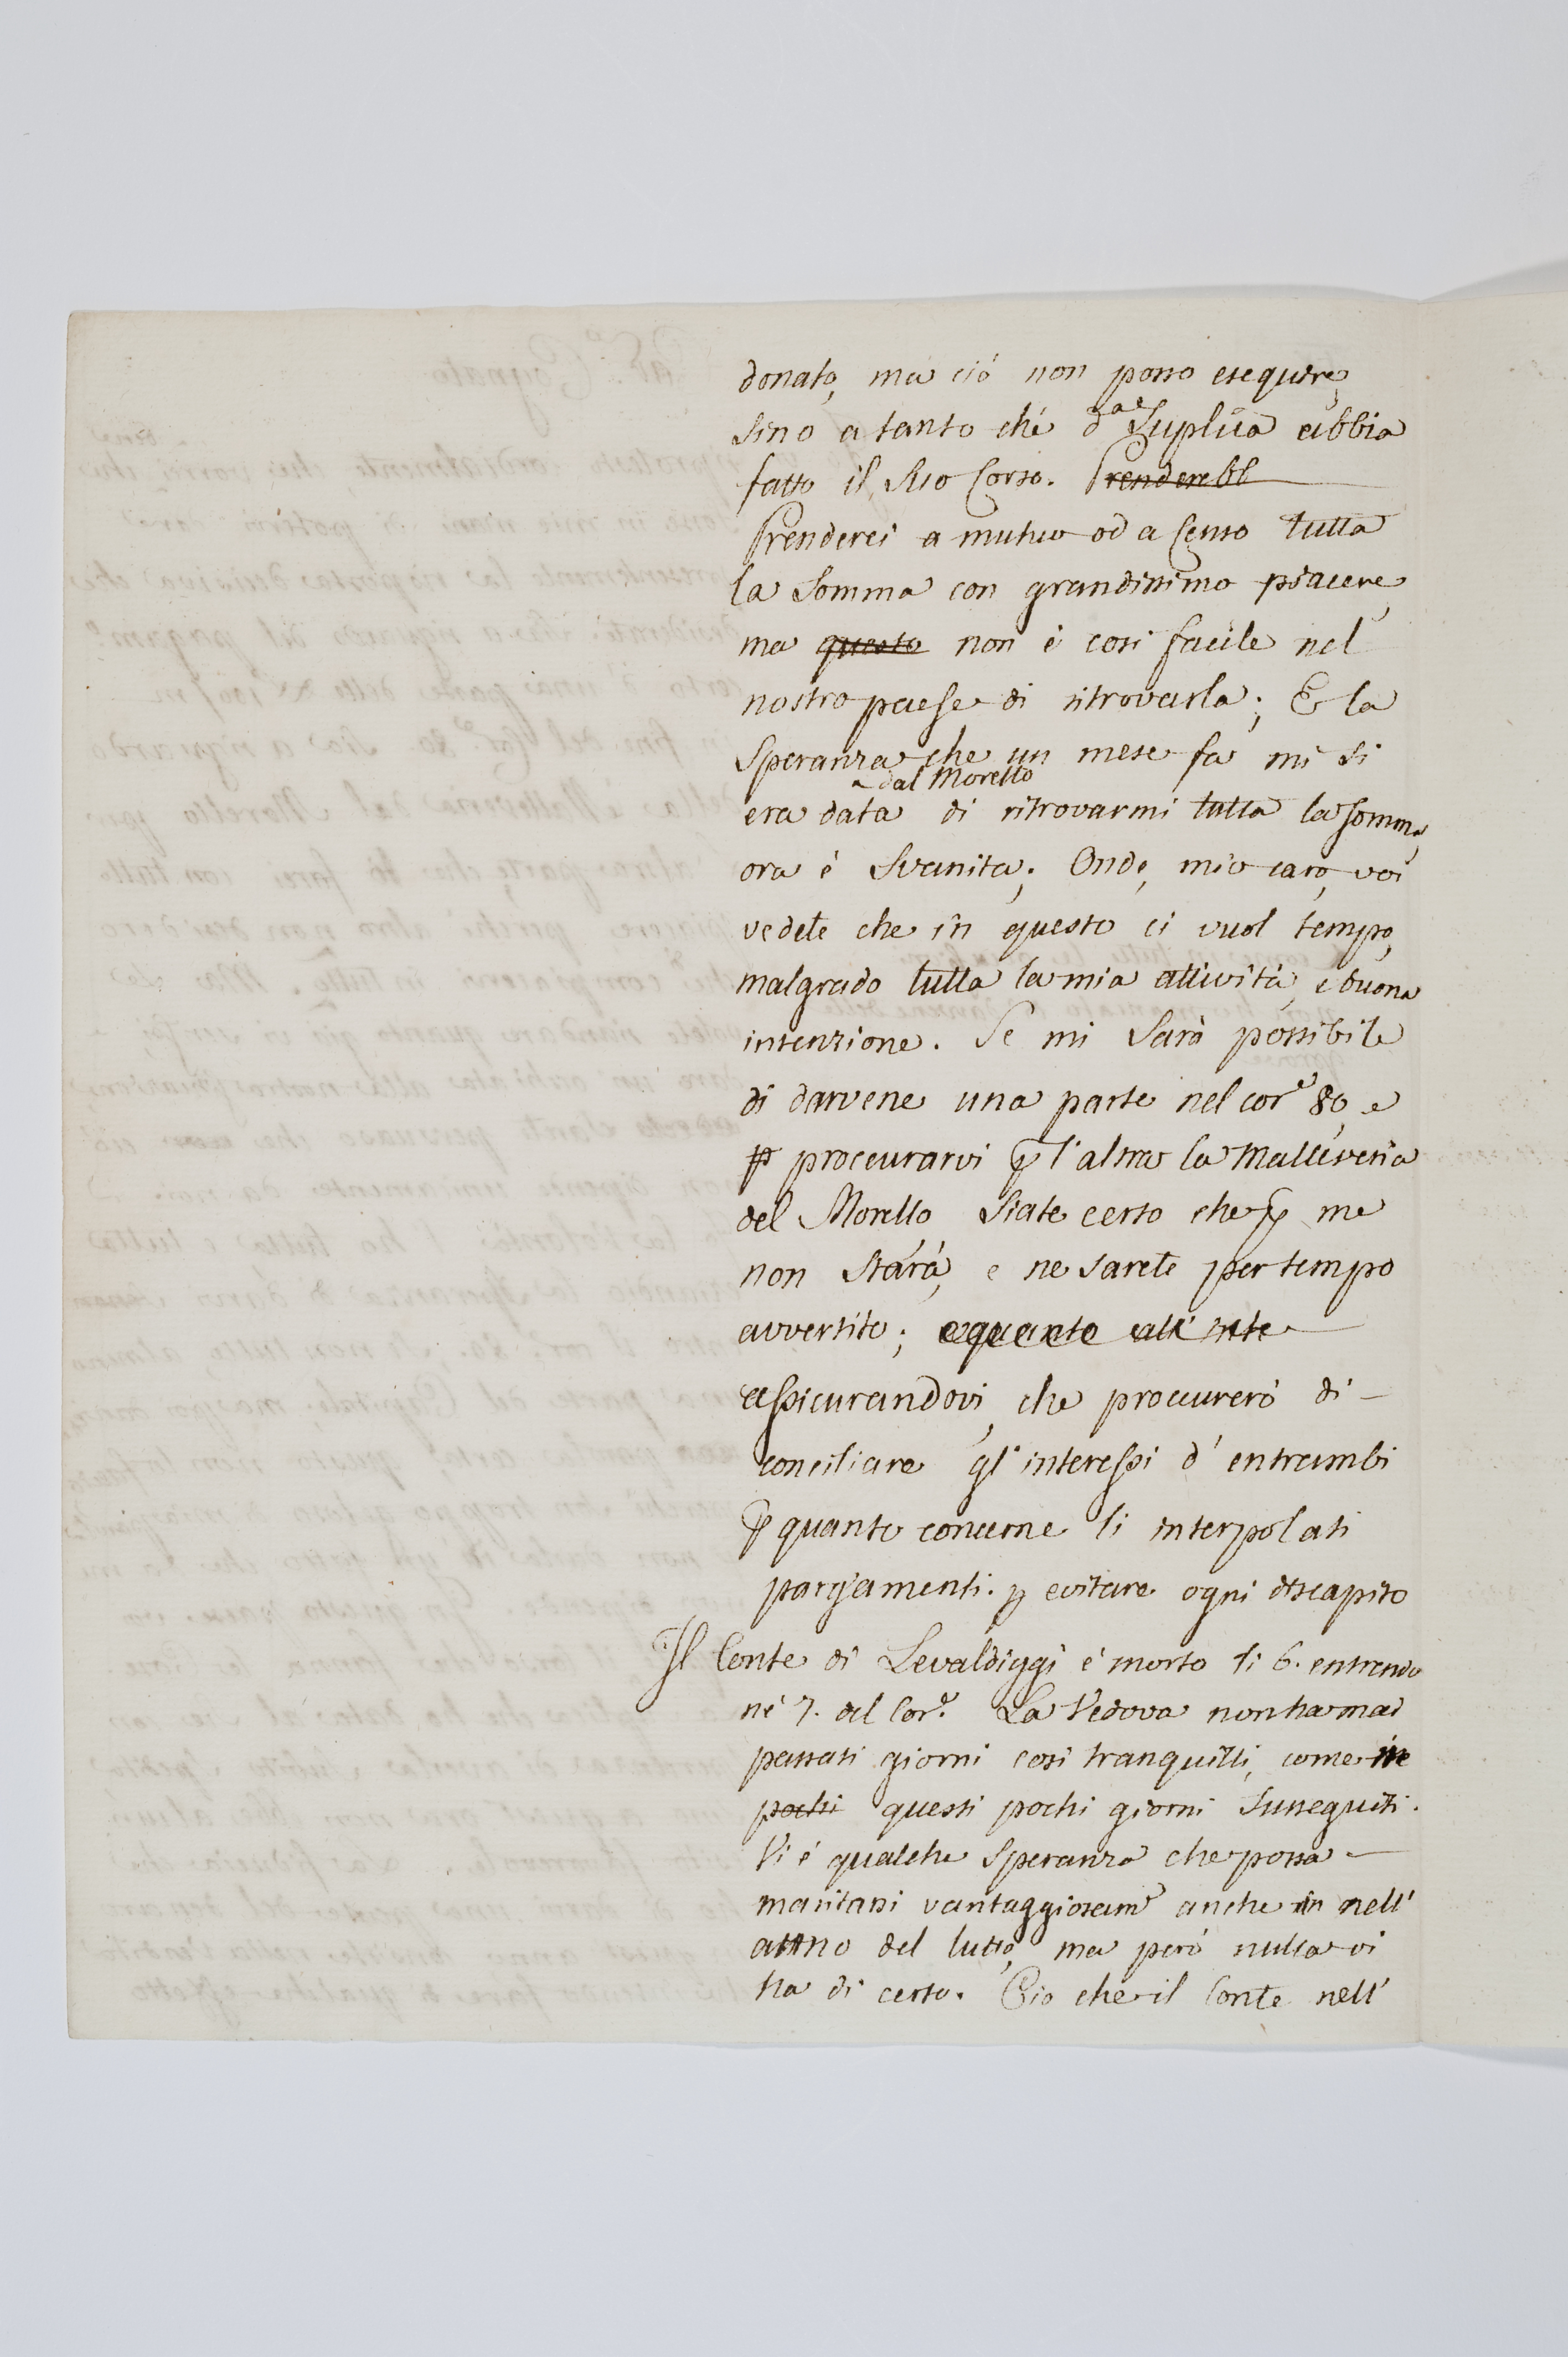 donato, ma ciò non posso eseguire,
sino a tanto ché d.ª Suplica abbia
fatto il suo Corso. Prenderebb
Prenderei a mutuo od a Censo tutta
la Somma con grandissimo piacere,
ma questo non è così facile nel
nostro paese di ritrovarla; E la
Speranza che un mese fa mi si
dal Morello
era data di ritrovarmi tutta la somma,
ora è Svanita; Onde, mio caro, voi
vedete che in questo ci vuol tempo,
malgrado tutta la mia attività, e buona
intenzione. Se mi sarà possibile
di darvene una parte nel cor.e 80, e
p procurarvi p l'altra la Malleveria
del Morello siate certo che p me
non starà, e ne sarete per tempo
avvertito; e quanto all'
assicurandovi, che procurerò di
conciliare gl'interessi d'entrambi
p quanto concerne li interpolati
pargiamenti. p evitare ogni discapito
Il Conte di Levaldiggi è morto li 6. entrando
né 7. del Cor.e La Vedova non ha mai
passati giorni così tranquilli, come in
pochi questi pochi giorni Susseguiti.
Vi è qualche Speranza che possa
maritarsi vantaggiosam.e anche in nell'
anno del lutto, ma però nulla vi
ha di certo. Ciò che il Conte nell'